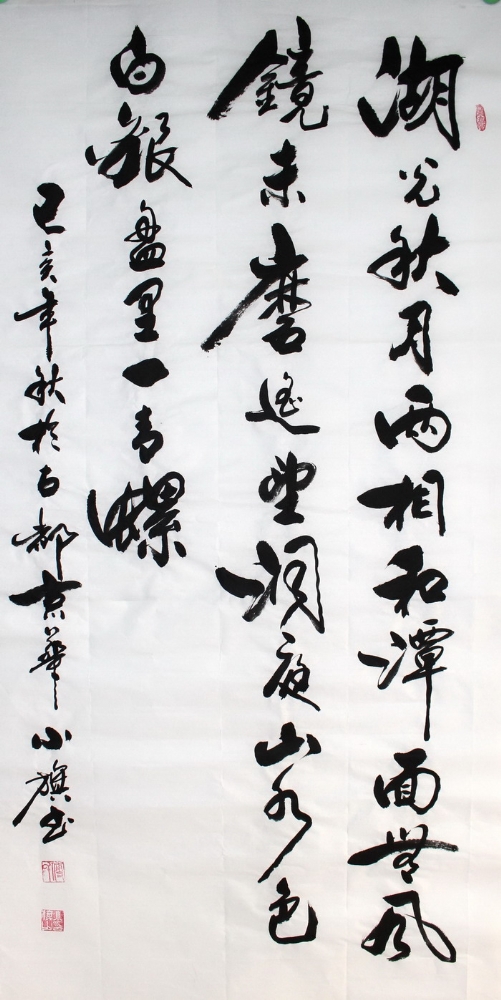 湖光秋月兩相和潭面無風
鏡未磨遙望洞庭山水色
白銀盤里一青螺
己亥年秋於古都京華小旗书